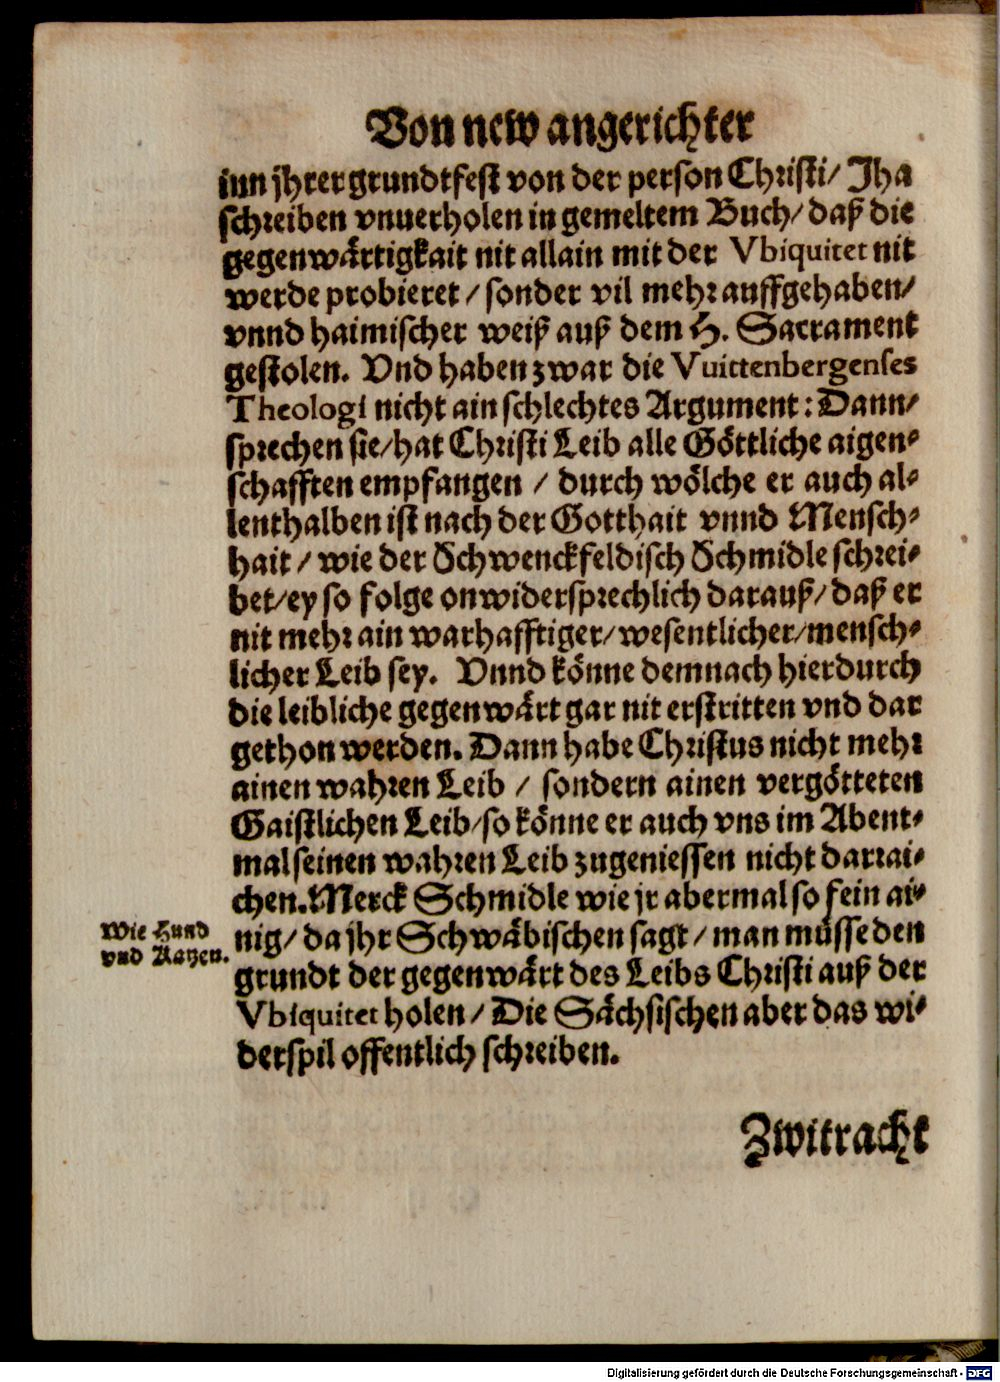 Von new angerichter
inn jhrer grundtfest von der person Christi/ Jha
schreiben vnuerholen in gemeltem Buch/ daß die
gegenwärtigkait nit allain mit der Vbiquitet nit
werde probieret/ sonder vil mehr auffgehaben/
vnnd haimischer weiß auß dem H. Sacrament
gestolen. Vnd haben zwar die Vuittenbergenses
Theologi nicht ain schlechtes Argument: Dann/
sprechen sie/ hat Christi Leib alle Göttliche aigen-
schafften empfangen / durch wölche er auch al-
lenthalben ist nach der Gotthait vnnd Mensch-
hait / wie der Schwenckfeldisch Schmidle schrei-
bet/ ey so folge onwidersprechlich darauß/ daß er
nit mehr ain warhafftiger/ wesentlicher/ mensch-
licher Leib sey. Vnnd könne demnach hierdurch
die leibliche gegenwärt gar nit erstritten vnd dar
gethon werden. Dann habe Christus nicht mehr
ainen wahren Leib / sondern ainen vergötteten
Gaistlichen Leib/ so könne er auch vns im Abent-
mal seinen wahren Leib zugeniessen nicht darrai-
chen. Merck Schmidle wie jr abermal so fein ai-
Wie Hund
vnd Katzen.
nig/ da jhr Schwäbischen sagt/ man müsse den
grundt der gegenwärt des Leibs Christi auß der
Vbiquitet holen/ Die Sächsischen aber das wi-
derspil offentlich schreiben.
Zwitracht
Digitalisierung gefördert durch die Deutsche Forschungsgemeinschaft - DFG